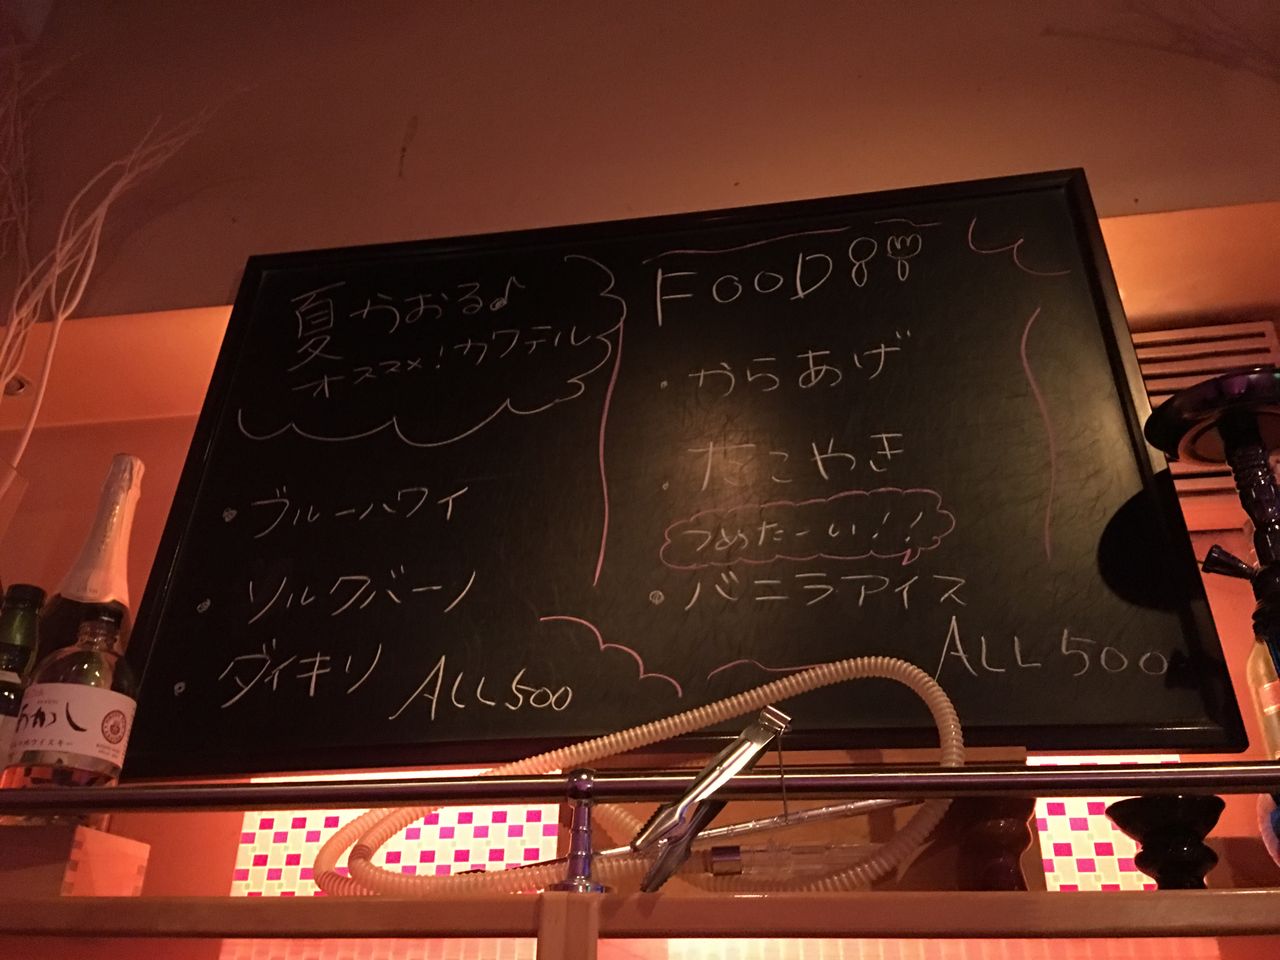 夏かおる♪
オススメ!カクテル
・ブルーハワイ
・ソルクバーノ
・ダイキリ
ALL500
FOOD
・からあげ
・たこやき
つめたーい!!
・バニラアイス
ALL 500
あかし